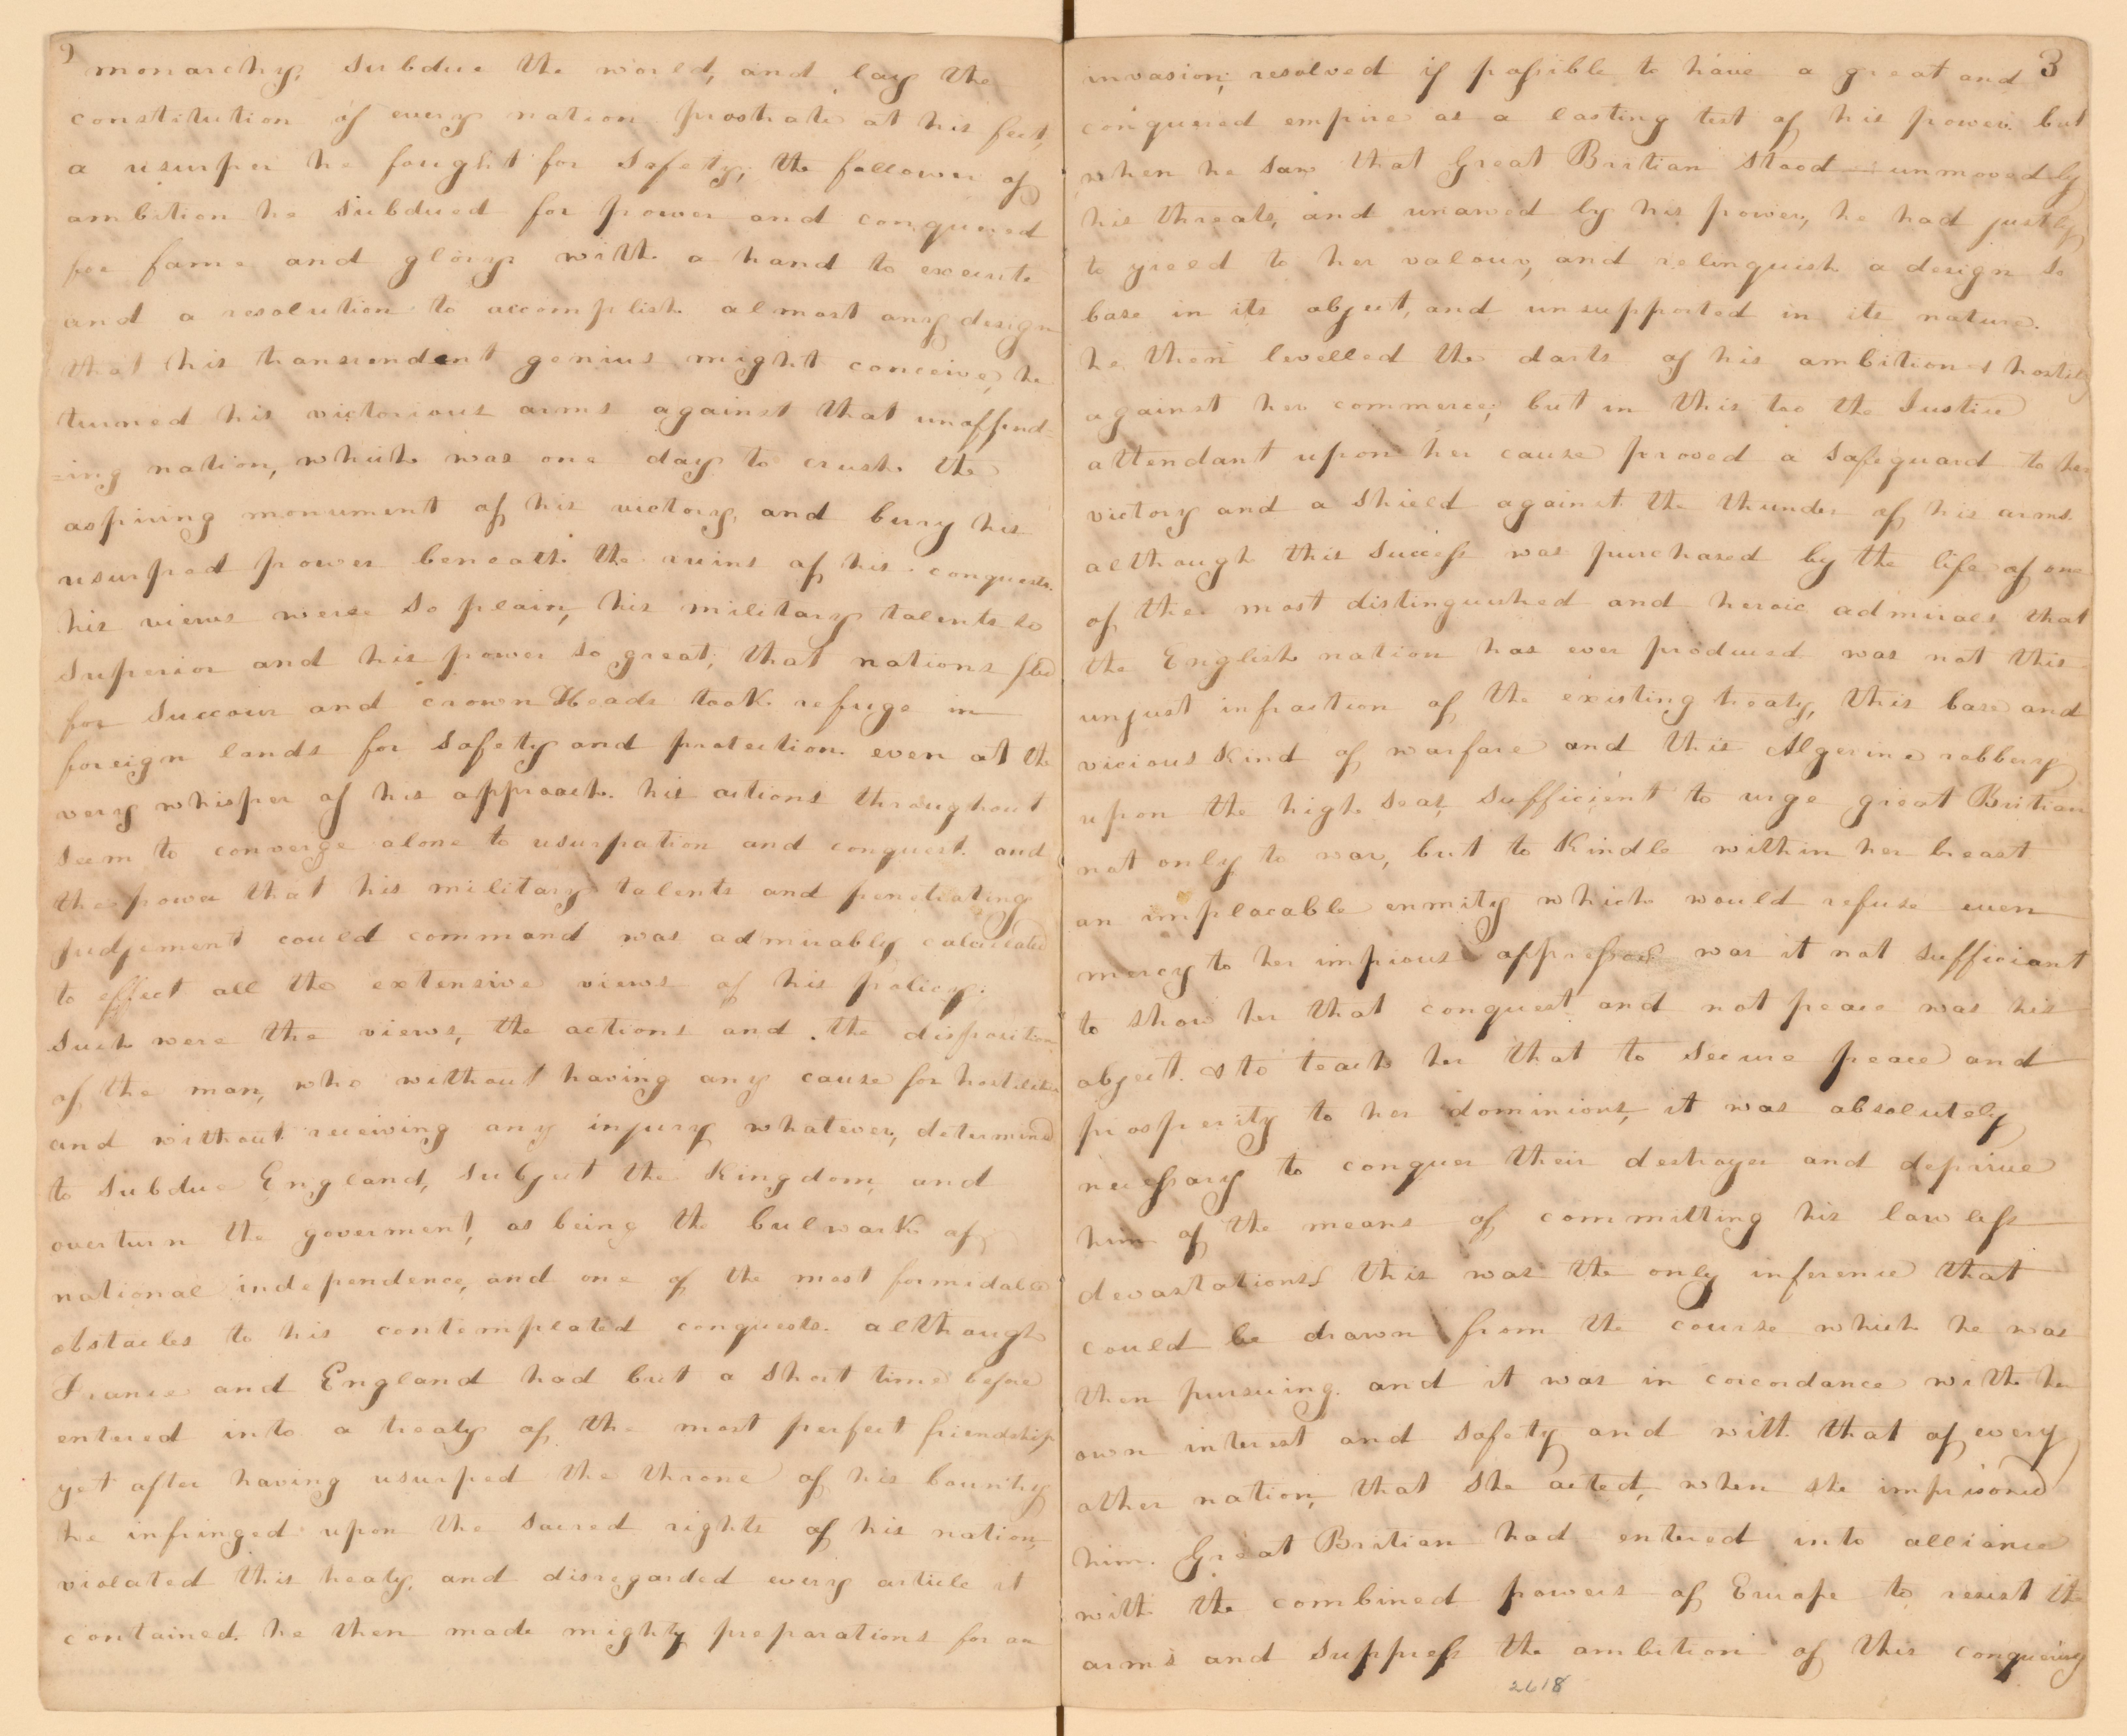 2
monarchy, subdue the world, and lay the
constitution of every nation prostrate at his feet,
a usurper he fought for safety; the follower of
ambition he subdued for power and conquered
for fame and glory with a hand to execute
and a resolution to accomplish almost any design
that his transendent genius might conceive, he
turned his victorious arms against that unoffend-
=ing nation, which was one day to crush the
aspiring monument of his victory, and bury his
usurped power beneath the ruins of his conquests.
his views were so plain, his military talents so
superior and his power so great, that nations fled
for succour and crown Heads took refuge in
foreign lands for safety and protection even at the
very whisper of his approach. his actions throughout
seem to converge alone to usurpation and conquest. and
the power that his military talents and penetrating
judjement could command was admirably calculated
to effect all the extensive views of his policy.
such were the views, the actions and the disposition
of the man, who without having any cause for hostilities
and without receiving any injury whatever, determined
to subdue England, subject the Kingdom, and
overturn the goverment, as being the bulwark of
national independence, and one of the most formidable
obstacles to his contemplated conquests. although
France and England had but a short time before
entered into a treaty of the most perfect friendship
yet after having usurped the throne of his country
he infringed upon the sacred rights of his nation,
violated this treaty, and disregarded every article it
contained. he then made mighty preparations for an
3
invasion; resolved if possible to have a great and
conquered empire as a lasting test of his power. but
when he saw that Great Britian stood unmoved by
his threats, and unawed by his power, he had justly
to yreld to her valour, and relinquish a design so
base in its object, and unsupported in its nature.
he then levelled the darts of his ambition & hostily
against her commerce; but in this too the Justice
attendant upon her cause proved a safeguard to her
victory and a shield against the thunder of his arms.
although this success was purchased by the life of one
of the most distinguished and heroic admirals that
the English nation has ever produced was not this
unjust infraction of the existing treaty, this base and
vicious kind of warfare and this Algerine robbery
upon the high seas, sufficient to urge great Britian
not only to war, but to Kindle within her breast
an implacable enmity which would refuse even
mercy to her impious oppressor was it not sufficiant
to show her that conquest and not peace was his
object. & to teach her that to secure peace and
prosperity to her dominions, it was absolutely
necessary to conquer their destroyer and deprive
him of the means of committing his lawless
devastations this was the only inference that
could be drawn from the course which he was
then pursuing. and it was in coicordance with her
own interest and safety and with that of every
other nation, that she acted, when she imprisoned
him. Great Britian had entered into alliance
with the combined powers of Europe to resist the
arms and suppress the ambition of this conquering
2618